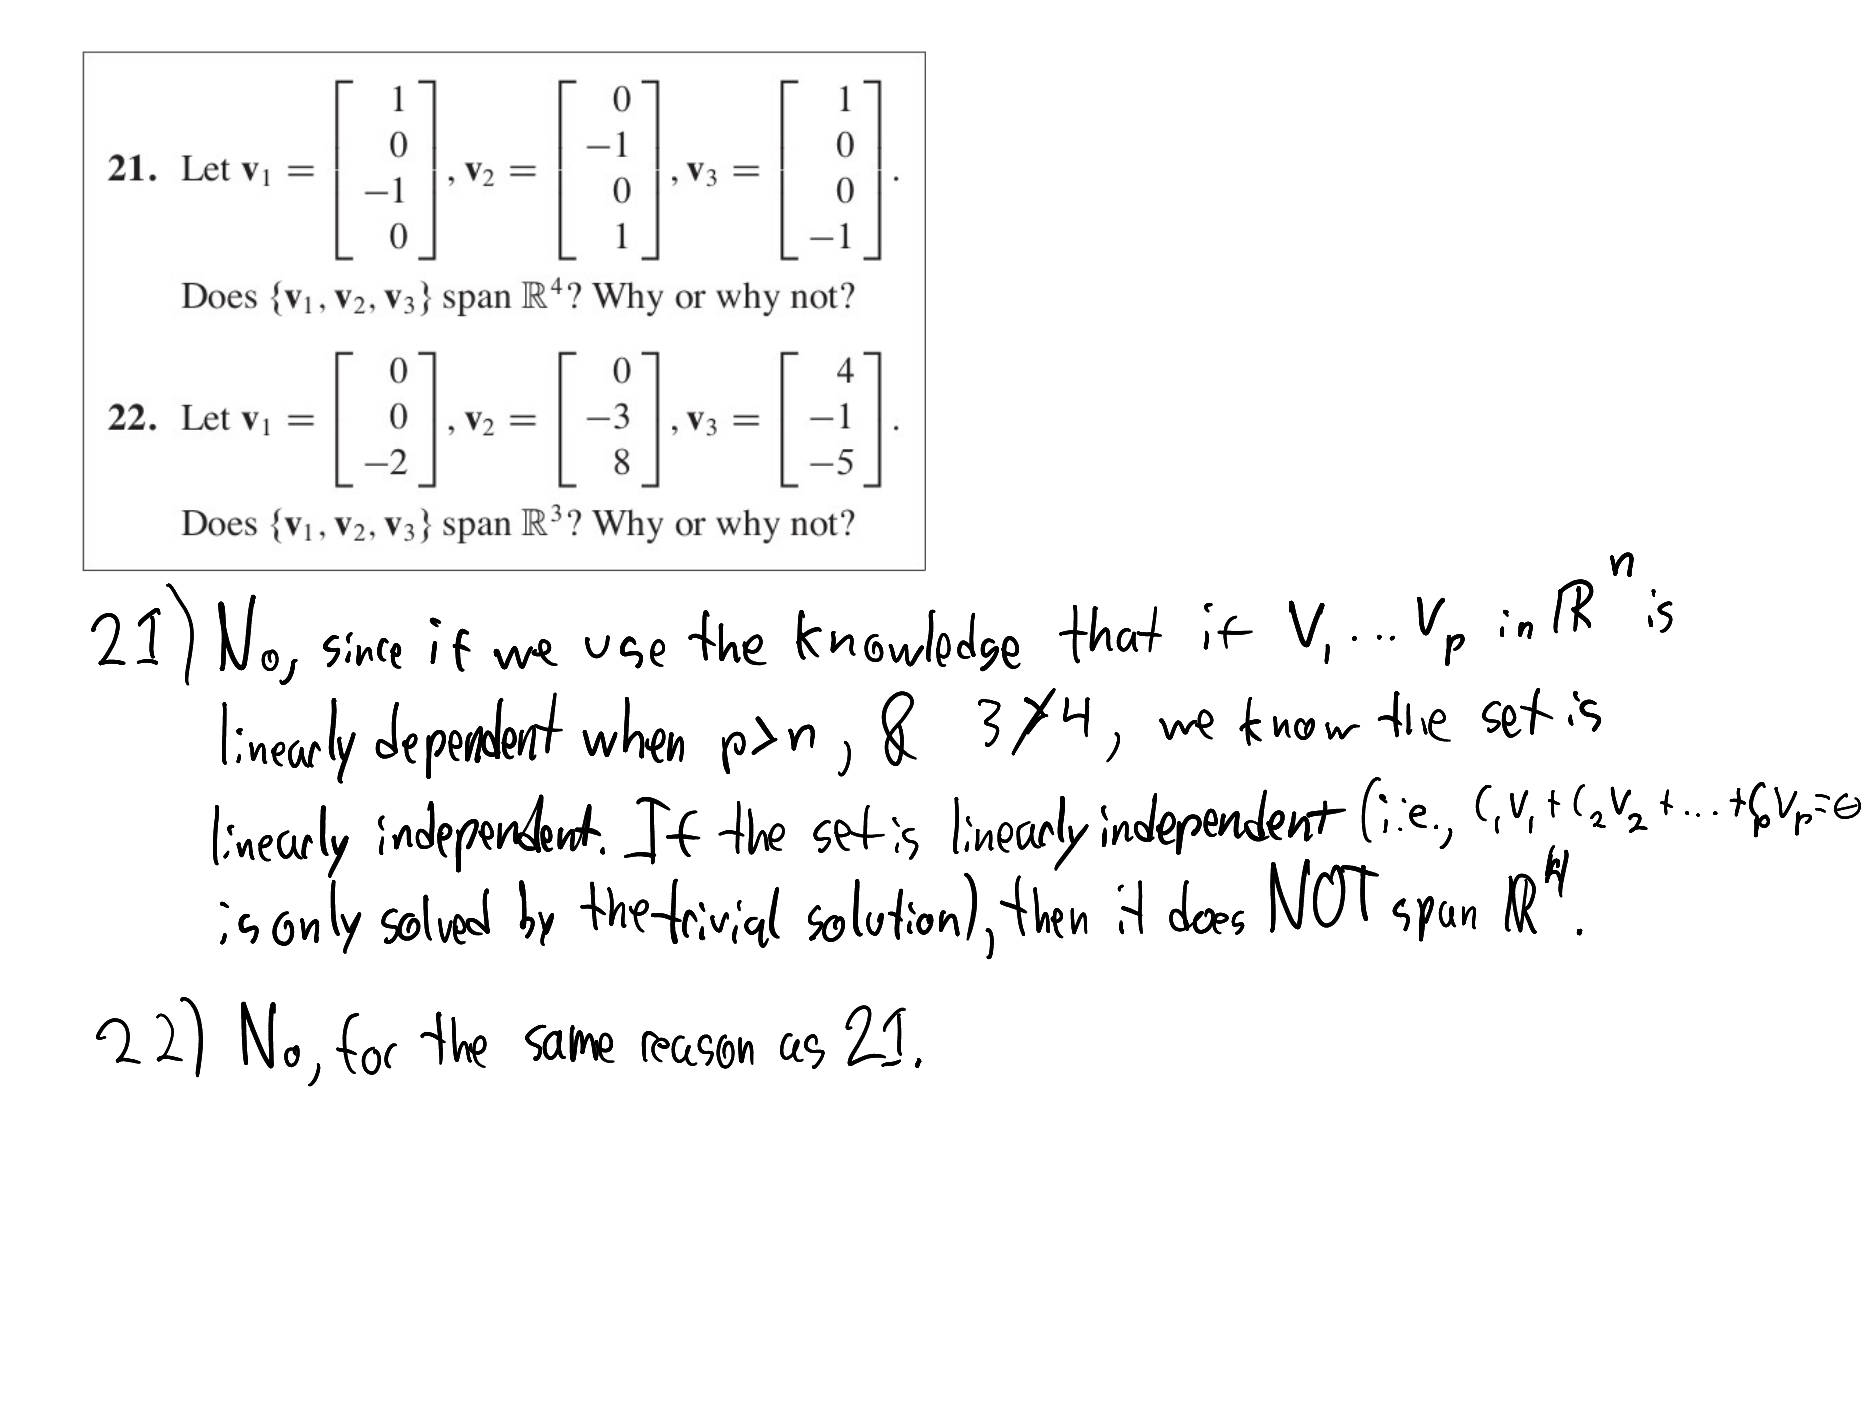 21. Let v₁ = [1 0 −1 0], v₂ = [0 −1 0 1], v₃ = [1 0 0 −1].
Does {v₁, v₂, v₃} span ℝ⁴? Why or why not?
22. Let v₁ = [0 0 −2], v₂ = [0 −3 8], v₃ = [4 −1 −5].
Does {v₁, v₂, v₃} span ℝ³? Why or why not?
21) No, since if we use the knowledge that if V₁ ... Vₚ in ℝⁿ is
linearly dependent when p>n, & 3≯4, we know the set is
linearly independent. If the set is linearly independent (i.e., C₁V₁+C₂V₂+...+CₚVₚ=0
is only solved by the trivial solution), then it does NOT span ℝ⁴.
22) No, for the same reason as 21.